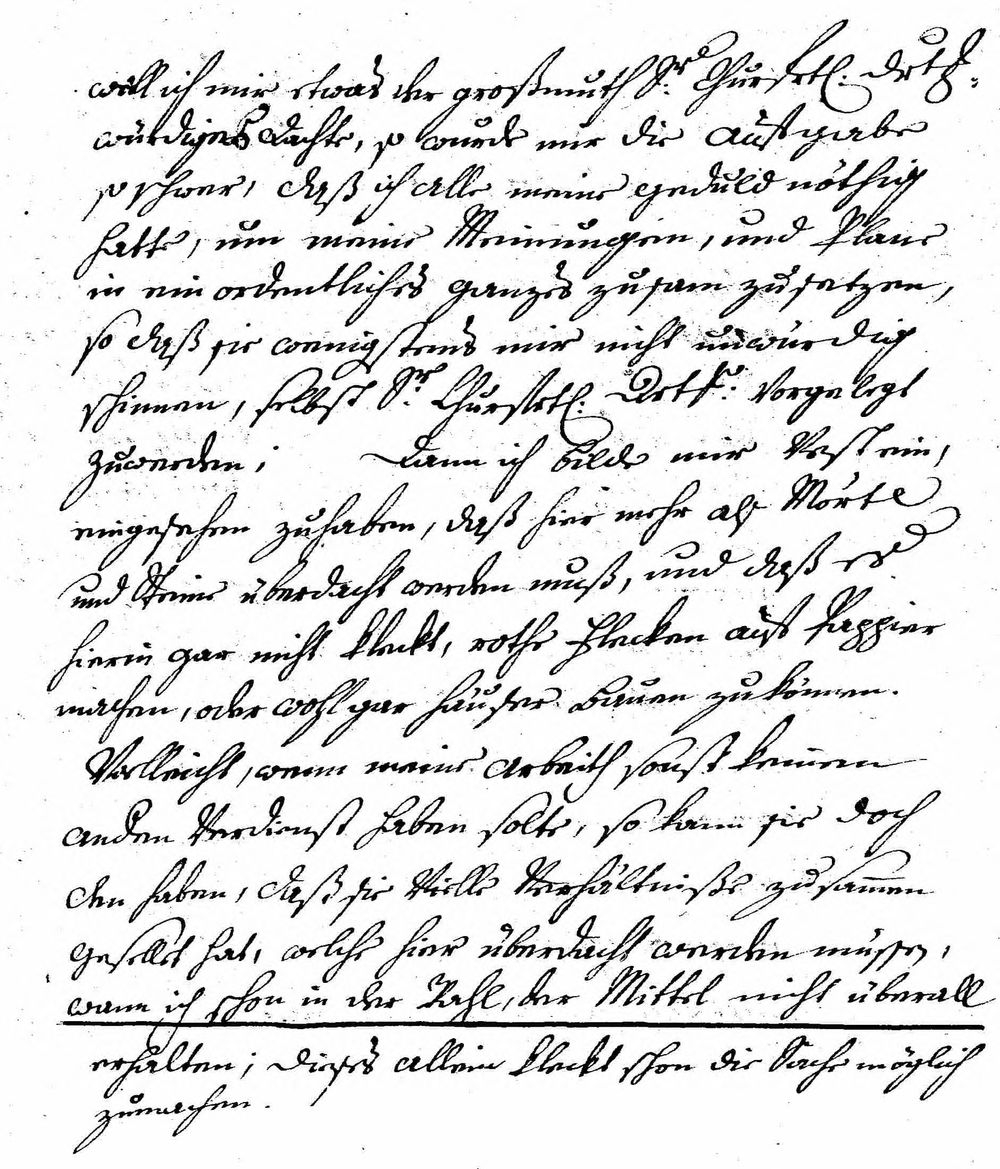 weill ich mir etwas der großmuth Sr. Churfrtl. Drtl:
würdiges dachte, so wurde mir die aufgabe
so schwer, daß ich alle meine geduld nöthig
hatte, um meine Meinungen, und Plane
in ein ordentliches ganzes zusam zusetzen,
so daß sie wenigstens mir nicht unwürdig
schinnen, selbst Sr. Churfrtl. Drtl. Vorgelegt
zuwerden; Dann ich bilde mir Vest ein,
eingesehen zuhaben, daß hier mehr als Mörtel
und Steine überdacht werden muß, und daß es
hierin gar nicht kleckt, rothe Flecken aufs Pappier
machen, oder wohl gar häuser bauen zu können.
Vielleicht, wenn meine arbeith sonst keinen
anden Verdienst haben solte, so kann sie doch
den haben, daß sie Vielle Verhältniße zusammen
gesellet hat, welche hier überdacht werden müssen,
wann ich schon in der Wahl, der Mittel nicht überall
erhalten; dieses allein kleckt schon die Sache möglich
zumachen.